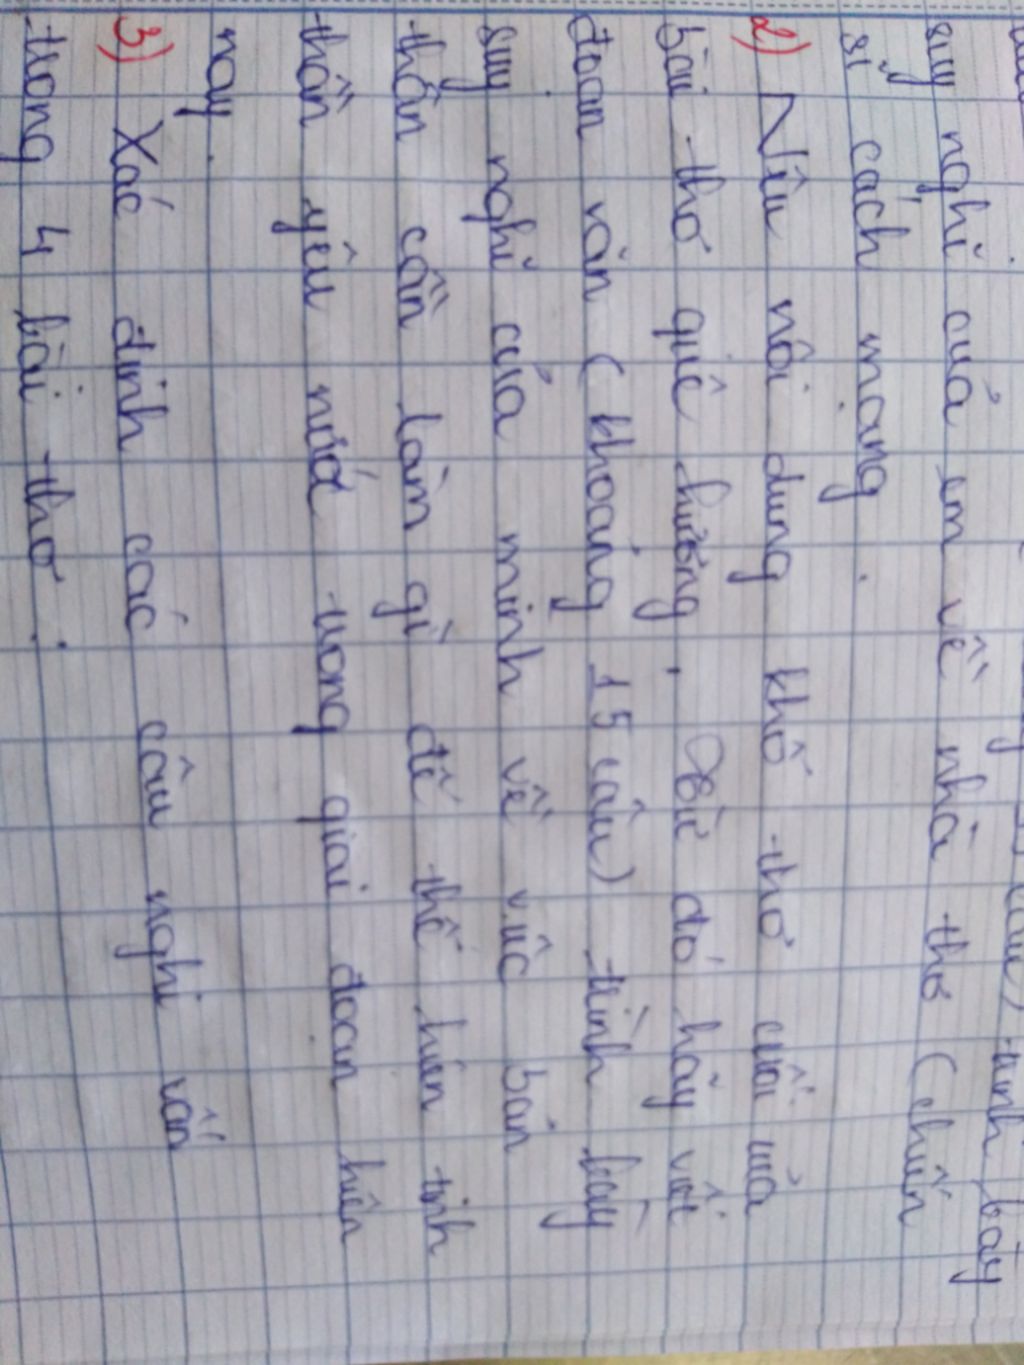 trình bày
suy nghĩ của em về nhà thơ (chiến
sĩ cách mạng.
2) Nêu nội dung khổ thơ cuối của
bài thơ quê hương. Từ đó hãy viết
đoạn văn (khoảng 15 câu) trình bày
suy nghĩ của mình về việc bản
thân cần làm gì để thể hiện tinh
thần yêu nước trong giai đoạn hiện
nay.
3) Xác định các câu nghi vấn
trong 4 bài thơ: